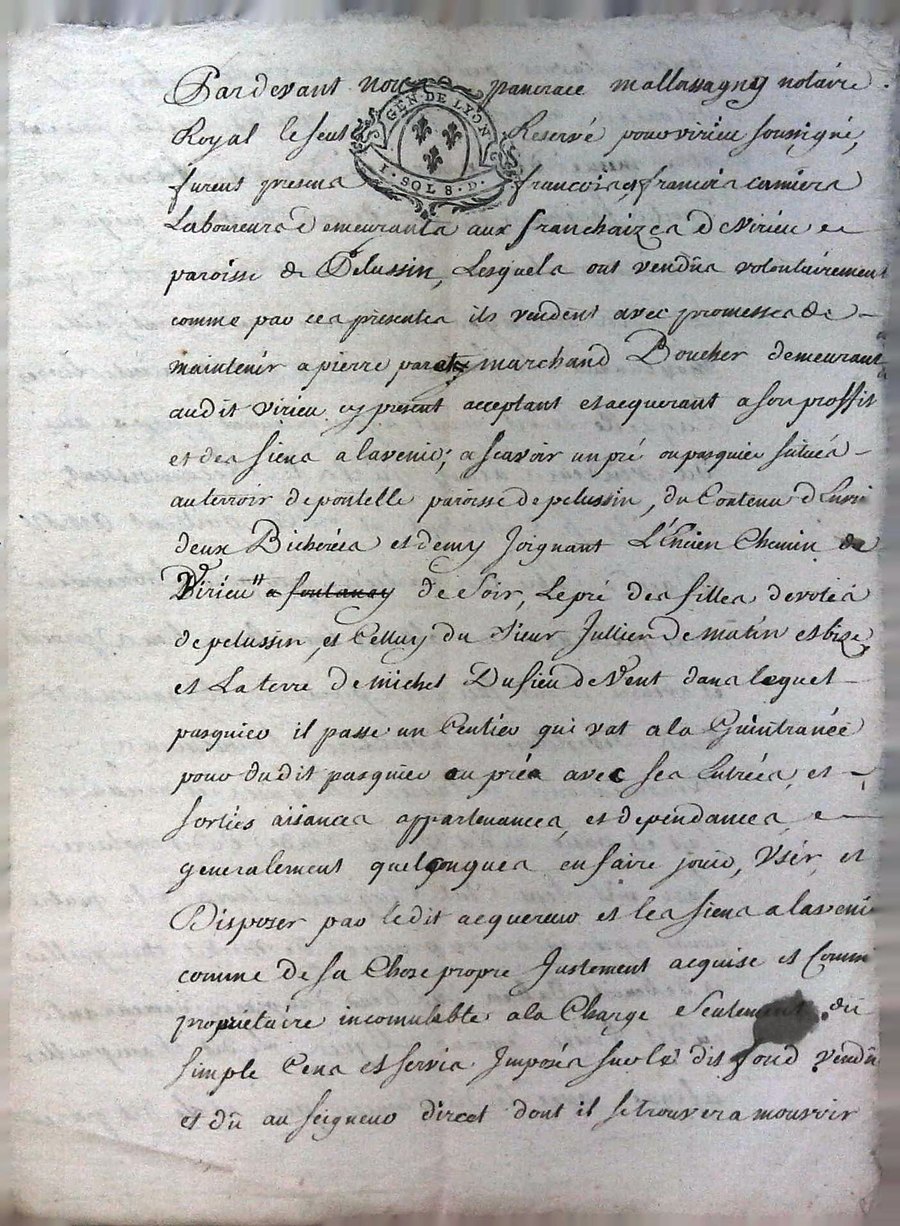 Pardevant nous pancrace mallassagny notaire
GEN. DE LYON
1. SOL 8. D.
Royal le seul Reservé pour virieu soussigné,
furent presens francois et francois camiers
Laboureurs demeurants aux franchaizes de Virieu
paroisse de Pelussin, Lesquels ont vendûs volontairement
comme par ces presentes ils vendent avec promesses de
maintenir a pierre paret marchand Boucher demeurant
audit virieu cy present acceptant et acquerant a son proffit
et des siens a lavenir; a scavoir un pré ou pasquier situés
au terroir de pontelle paroisse de pelussin, du Contenu
deux Bicherées et demy Joignant L'Encien Chemin de
Virieu a fontanay de Soir, Le pré des filles devotes
de pelussin, et Celluy du Sieur Jullien de matin et bize,
et La terre de michel Dusieu de Vent dans lequel
pasquier il passe un Centier qui vat a la Guintranée
pour dudit pasquier ou prés avec ses Entrées et
sorties aisances appartenances, et dependances
generalement quelconques en faire jouir, User, et
Disposer par ledit acquereur et les siens a lavenir
comme de sa Chose propre Justement acquise et Comme
propriétaire incomutable a la Charge Seulement du
simple Cens et servis Imposés sur le dit fond vendû
et dû au seigneur direct dont il se trouvera mouvoir